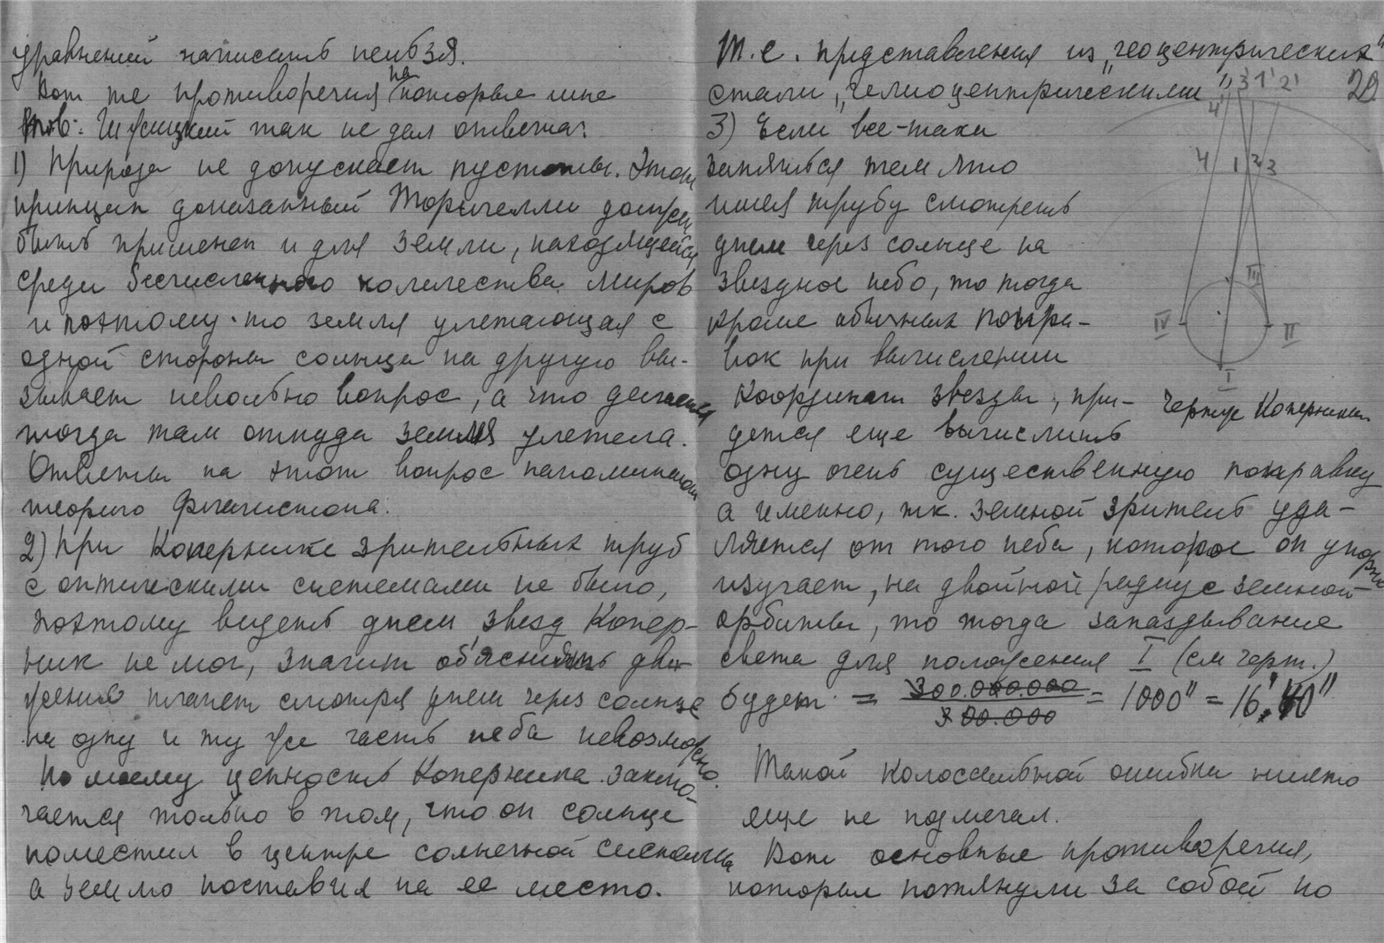 уравнений написать нельзя.
Вот те противоречия на которые мне
тов. так не дал ответа:
1) Природа не допускает пустоты. Этот
принцип доказанный Торичелли должен
быть применен и для земли, находящейся
среди бесчисленного количества миров
и поэтому-то земля улетающая с
одной стороны солнца на другую вы-
зывает невольно вопрос, а что делается
тогда там откуда земля улетела.
Ответы на этот вопрос напоминают
теорию Флогистона.
2) При Копернике зрительных труб
с оптическими системами не было,
поэтому видеть днем звезд Копер-
ник не мог, значит объяснить дви-
жение планет смотря днем через солнце
на одну и ту же часть неба невозможно.
По моему ценность Коперника заклю-
чается только в том, что он солнце
поместил в центре солнечной системы
а землю поставил на ее место.
Т.е. представления из „геоцентрических"
стали „гелиоцентрическими"
20
3) Если все-таки
заняться тем что
имея трубу смотреть
днем через солнце на
звездное небо, то тогда
кроме обычных попра-
вок при вычислении
координат звезды, при-
дется еще вычислить
одну очень существенную поправку
а именно, т.к. земной зритель уда-
ляется от того неба, которое он упорно
изучает, на двойной радиус земной
орбиты, то тогда запаздывание
света для положения I (см черт.)
будет = 300.000.000 / 300.000 = 1000" = 16' 40"
Такой колоссальной ошибки никто
еще не подмечал.
Вот основные противоречия,
которые потянули за собой по
4' 3' 1' 2'
4 1 2 3
III
IV II
I
Чертеж Коперника